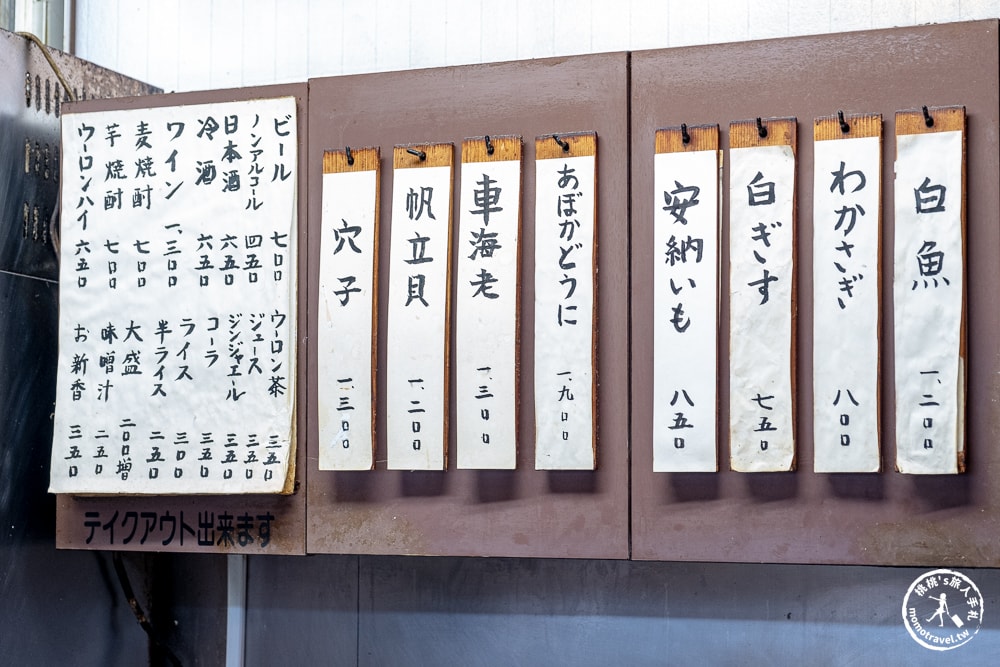 白魚 一、二〇〇
わかさぎ 八〇〇
白ぎす 七五〇
安納いも 八五〇
あぼかどうに 一、九〇〇
車海老 一、三〇〇
帆立貝 一、二〇〇
穴子 一、三〇〇
ビール 七〇〇
ノンアルコール 四五〇
日本酒 六五〇
冷酒 六五〇
ワイン 一、三〇〇
麦焼酎 七〇〇
芋焼酎 七〇〇
ウーロンハイ 六五〇
ウーロン茶 三五〇
ジュース 三五〇
ジンジャエール 三五〇
コーラ 三五〇
ライス 三〇〇
半ライス 二五〇
大盛 二〇〇増
味噌汁 二五〇
お新香 三五〇
テイクアウト出来ます
桃桃's旅人手札
momotravel.tw